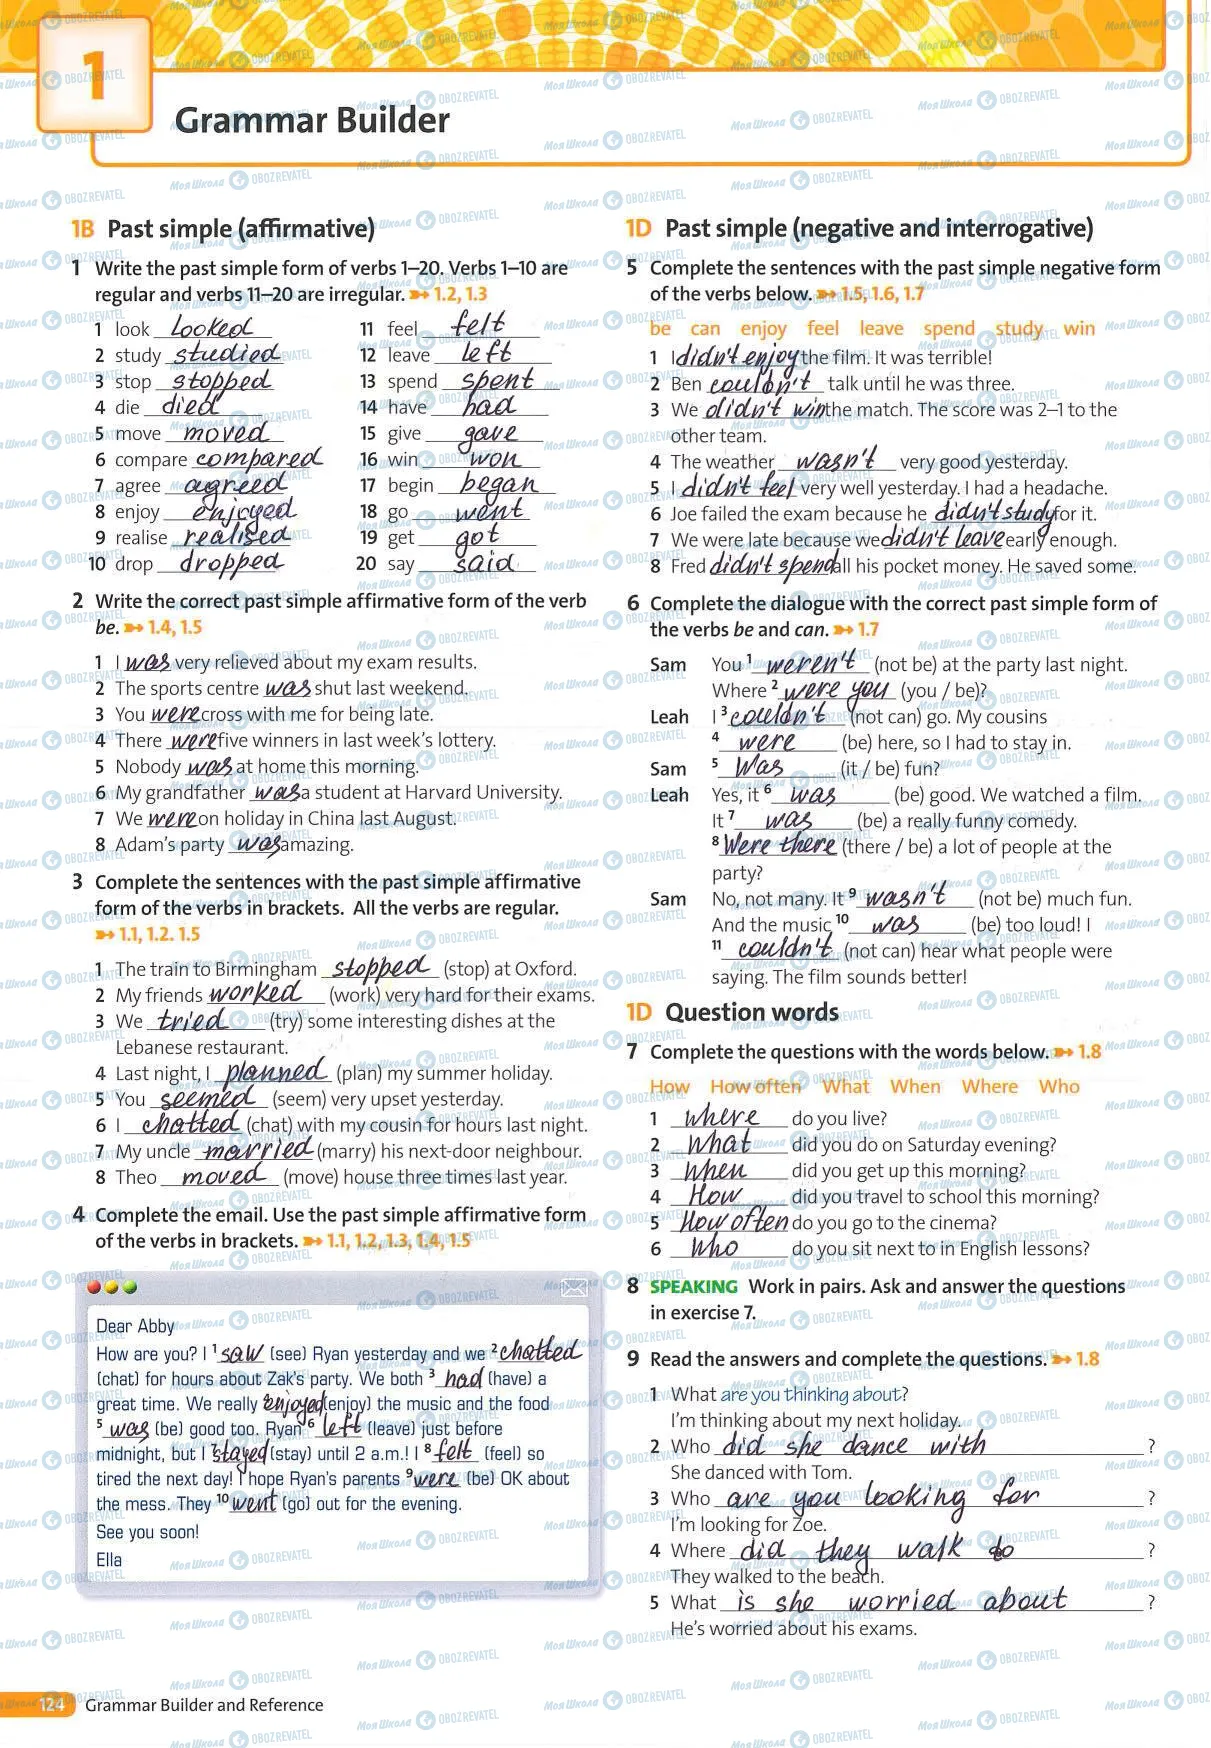 1
Grammar Builder
1B Past simple (affirmative)
1 Write the past simple form of verbs 1–20. Verbs 1–10 are
regular and verbs 11–20 are irregular. ➳ 1.2, 1.3
1 look Looked
2 study studied
3 stop stopped
4 die died
5 move moved
6 compare compared
7 agree agreed
8 enjoy enjoyed
9 realise realised
10 drop dropped
11 feel felt
12 leave left
13 spend spent
14 have had
15 give gave
16 win won
17 begin began
18 go went
19 get got
20 say said
2 Write the correct past simple affirmative form of the verb
be. ➳ 1.4, 1.5
1 I was very relieved about my exam results.
2 The sports centre was shut last weekend.
3 You were cross with me for being late.
4 There were five winners in last week's lottery.
5 Nobody was at home this morning.
6 My grandfather was a student at Harvard University.
7 We were on holiday in China last August.
8 Adam's party was amazing.
3 Complete the sentences with the past simple affirmative
form of the verbs in brackets. All the verbs are regular.
➳ 1.1, 1.2. 1.5
1 The train to Birmingham stopped (stop) at Oxford.
2 My friends worked (work) very hard for their exams.
3 We tried (try) some interesting dishes at the
Lebanese restaurant.
4 Last night, I planned (plan) my summer holiday.
5 You seemed (seem) very upset yesterday.
6 I chatted (chat) with my cousin for hours last night.
7 My uncle married (marry) his next-door neighbour.
8 Theo moved (move) house three times last year.
4 Complete the email. Use the past simple affirmative form
of the verbs in brackets. ➳ 1.1, 1.2, 1.3, 1.4, 1.5
Dear Abby
How are you? I 1 saw (see) Ryan yesterday and we 2 chatted
(chat) for hours about Zak's party. We both 3 had (have) a
great time. We really 4 enjoyed (enjoy) the music and the food
5 was (be) good too. Ryan 6 left (leave) just before
midnight, but I 7 stayed (stay) until 2 a.m.! I 8 felt (feel) so
tired the next day! I hope Ryan's parents 9 were (be) OK about
the mess. They 10 went (go) out for the evening.
See you soon!
Ella
1D Past simple (negative and interrogative)
5 Complete the sentences with the past simple negative form
of the verbs below. ➳ 1.5, 1.6, 1.7
be can enjoy feel leave spend study win
1 I didn't enjoy the film. It was terrible!
2 Ben couldn't talk until he was three.
3 We didn't win the match. The score was 2–1 to the
other team.
4 The weather wasn't very good yesterday.
5 I didn't feel very well yesterday. I had a headache.
6 Joe failed the exam because he didn't study for it.
7 We were late because we didn't leave early enough.
8 Fred didn't spend all his pocket money. He saved some.
6 Complete the dialogue with the correct past simple form of
the verbs be and can. ➳ 1.7
Sam You 1 weren't (not be) at the party last night.
Where 2 were you (you / be)?
Leah I 3 couldn't (not can) go. My cousins
4 were (be) here, so I had to stay in.
Sam 5 Was (it / be) fun?
Leah Yes, it 6 was (be) good. We watched a film.
It 7 was (be) a really funny comedy.
8 Were there (there / be) a lot of people at the
party?
Sam No, not many. It 9 wasn't (not be) much fun.
And the music 10 was (be) too loud! I
11 couldn't (not can) hear what people were
saying. The film sounds better!
1D Question words
7 Complete the questions with the words below. ➳ 1.8
How How often What When Where Who
1 where do you live?
2 what did you do on Saturday evening?
3 when did you get up this morning?
4 How did you travel to school this morning?
5 How often do you go to the cinema?
6 Who do you sit next to in English lessons?
8 SPEAKING Work in pairs. Ask and answer the questions
in exercise 7.
9 Read the answers and complete the questions. ➳ 1.8
1 What are you thinking about?
I'm thinking about my next holiday.
2 Who did she dance with ?
She danced with Tom.
3 Who are you looking for ?
I'm looking for Zoe.
4 Where did they walk to ?
They walked to the beach.
5 What is she worried about ?
He's worried about his exams.
124 Grammar Builder and Reference
Моя Школа OBOZREVATEL